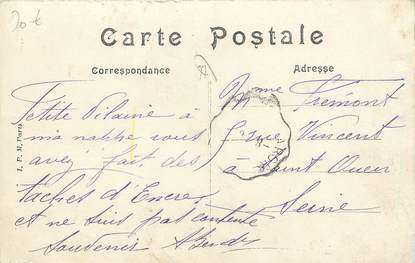 20 €
Carte Postale
Correspondance
Adresse
I. P. M. Paris
Petite Vilaine à
ma nappe vous
avez fait des
taches d'Encre
et ne suis pas contente
Souvenir
Mme Frémont
rue Vincent
à Saint Ouen
Seine